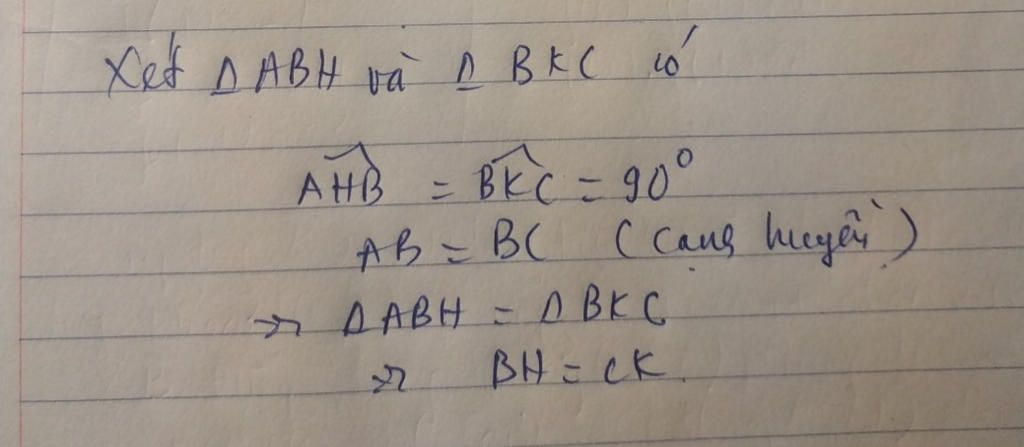 Xét Δ ABH và Δ BKC có
AHB = BKC = 90°
AB = BC (cạnh huyền)
=> Δ ABH = Δ BKC
=> BH = CK.